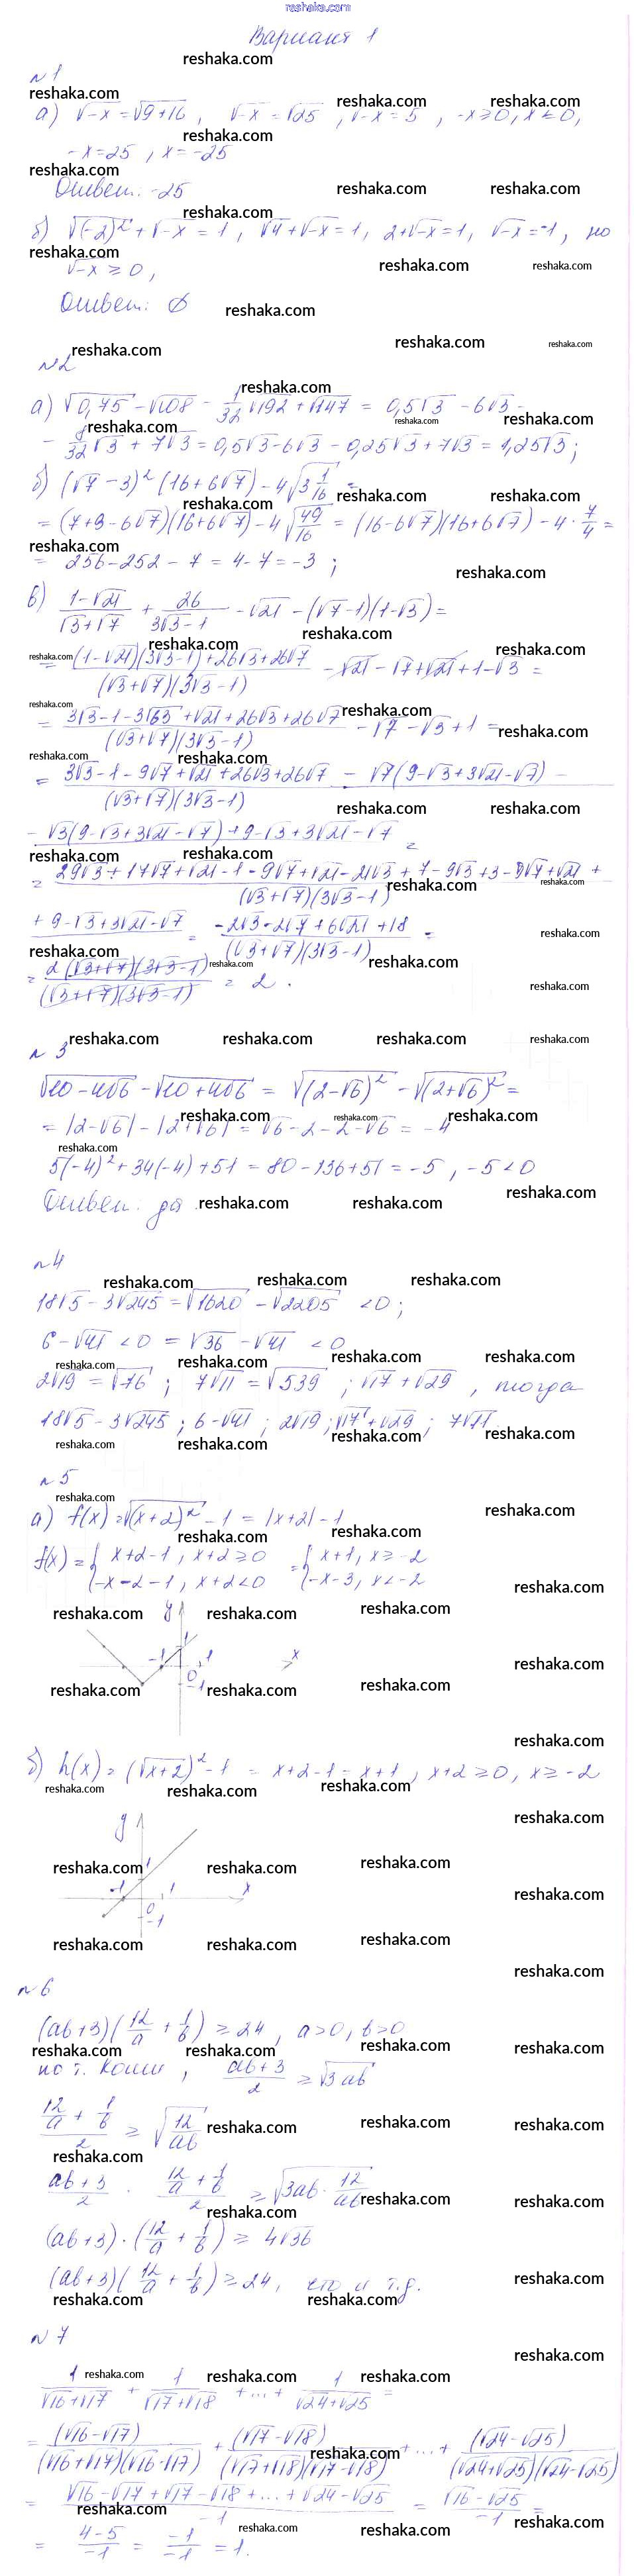 reshaka.com
Вариант 1
№1
а) √-x = √9+16, √-x = √25, √-x = 5, -x ≥ 0, x ≤ 0,
-x = 25, x = -25
Ответ: -25
б) √(-2)² + √-x = 1, √4 + √-x = 1, 2+√-x = 1, √-x = -1, но
√-x ≥ 0,
Ответ: ∅
№2
а) √0,75 - √108 - 1/32 √192 + √147 = 0,5√3 - 6√3 -
- 8/32 √3 + 7√3 = 0,5√3 - 6√3 - 0,25√3 + 7√3 = 1,25√3;
б) (√7 - 3)² (16+6√7) - 4√3 1/16 =
= (7+9-6√7)(16+6√7) - 4√49/16 = (16-6√7)(16+6√7) - 4 · 7/4 =
= 256-252-7 = 4-7 = -3;
в) (1-√21)/(√3+√7) + 26/(3√3-1) - √21 - (√7-1)(1-√3) =
= ((1-√21)(3√3-1)+26√3+26√7)/((√3+√7)(3√3-1)) - √21 - √7+√21+1-√3 =
= (3√3-1-3√63+√21+26√3+26√7)/((√3+√7)(3√3-1)) - √7 - √3+1 =
= (3√3-1-9√7+√21+26√3+26√7 - √7(9-√3+3√21-√7) -)/((√3+√7)(3√3-1))
- √3(9-√3+3√21-√7)+9-√3+3√21-√7 =
= (29√3+17√7+√21-1-9√7+√21-21√3+7-9√3+3-9√7+√21 +)/((√3+√7)(3√3-1))
+ 9-√3+3√21-√7 = (-2√3-2√7+6√21+18)/((√3+√7)(3√3-1)) =
= 2(√3+√7)(3√3-1)/((√3+√7)(3√3-1)) = 2.
№3
√10-4√6 - √10+4√6 = √(2-√6)² - √(2+√6)² =
= |2-√6| - |2+√6| = √6-2-2-√6 = -4
5(-4)²+34(-4)+51 = 80-136+51 = -5, -5<0
Ответ: да
№4
18√5 - 3√245 = √1620 - √2205 <0;
6-√41 <0 = √36 - √41 <0
2√19 = √76; 7√11 = √539; √17+√29, тогда
18√5-3√245; 6-√41; 2√19; √17+√29; 7√11.
№5
а) f(x) = √(x+2)² - 1 = |x+2| - 1
f(x) = { x+2-1, x+2≥0 = { x+1, x≥-2
{ -x-2-1, x+2<0 { -x-3, x<-2
y
1
x
-1
0
1
-1
б) h(x) = (√x+2)² - 1 = x+2-1 = x+1, x+2≥0, x≥-2
y
1
-1
1
x
0
-1
№6
(ab+3)(12/a + 1/b) ≥ 24, a>0, b>0
по т. Коши, (ab+3)/2 ≥ √3ab
(12/a + 1/b)/2 ≥ √12/ab
(ab+3)/2 · (12/a + 1/b)/2 ≥ √3ab · 12/ab
(ab+3) · (12/a + 1/b) ≥ 4√36
(ab+3)(12/a + 1/b) ≥ 24, что и т.д.
№7
1/(√16+√17) + 1/(√17+√18) + ... + 1/(√24+√25) =
= (√16-√17)/((√16+√17)(√16-√17)) + (√17-√18)/((√17+√18)(√17-√18)) + ... + (√24-√25)/((√24+√25)(√24-√25))
= (√16-√17+√17-√18+...+√24-√25)/-1 = (√16-√25)/-1 =
= (4-5)/-1 = -1/-1 = 1.